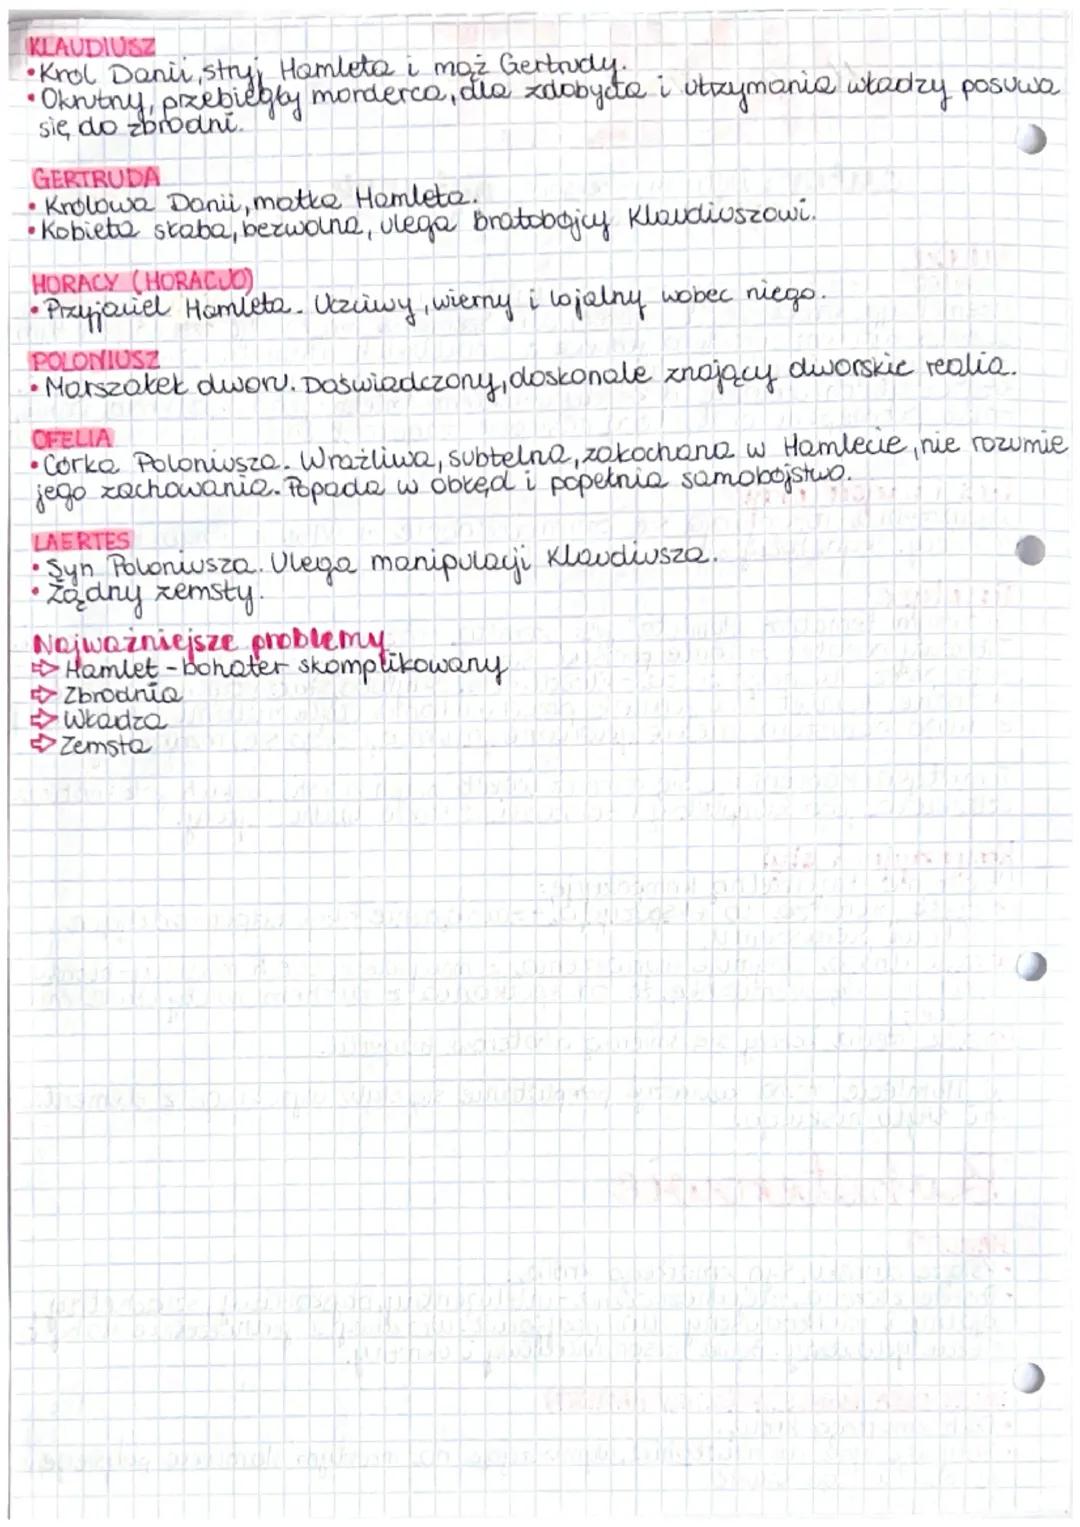 KLAUDIUSZ
• Król Danii, stryj Hamleta i mąż Gertrudy.
• Okrutny, przebiegły morderca, dla zdobycia i utrzymania władzy posuwa
się do zbrodni.
GERTRUDA
• Królowa Danii, matka Hamleta.
• Kobieta słaba, bezwolna, ulega bratobójcy Klaudiuszowi.
HORACY (HORACJO)
• Przyjaciel Hamleta. Uczciwy, wierny i lojalny wobec niego.
POLONIUSZ
• Marszałek dworu. Doświadczony, doskonale znający dworskie realia.
OFELIA
• Córka Poloniusza. Wrażliwa, subtelna, zakochana w Hamlecie, nie rozumie
jego zachowania. Popada w obłęd i popełnia samobójstwo.
LAERTES
• Syn Poloniusza. Ulega manipulacji Klaudiusza.
• Żądny zemsty.
Najważniejsze problemy
⇨ Hamlet - bohater skomplikowany
⇨ Zbrodnia
⇨ Władza
⇨ Zemsta